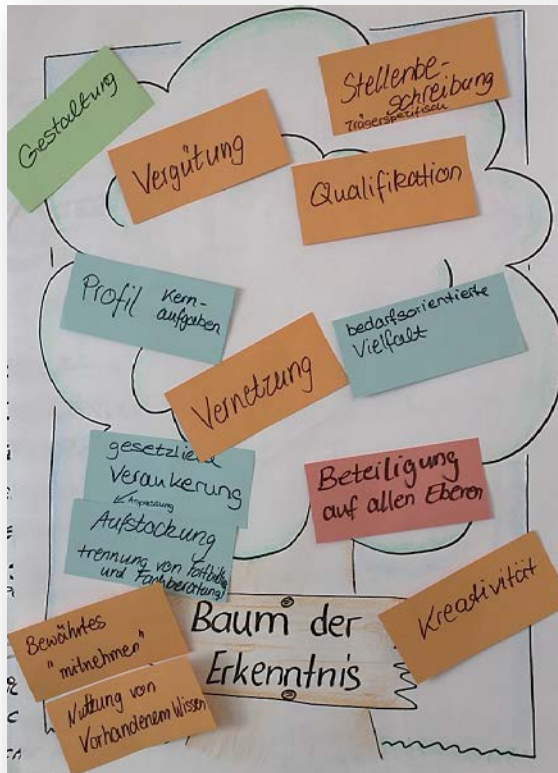 Gestaltung
Stellenbe-
schreibung
Trägerspezifisch
Vergütung
Qualifikation
Profil Kern-
aufgaben
bedarfsorientierte
Vielfalt
Vernetzung
gesetzliche
Verankerung
Anpassung
Aufstockung
trennung von Fortbildung
und Fachberatung
Beteiligung
auf allen Ebenen
Kreativität
Baum der
Erkenntnis
Bewährtes
"mitnehmen"
Nutzung von
Vorhandenem Wissen